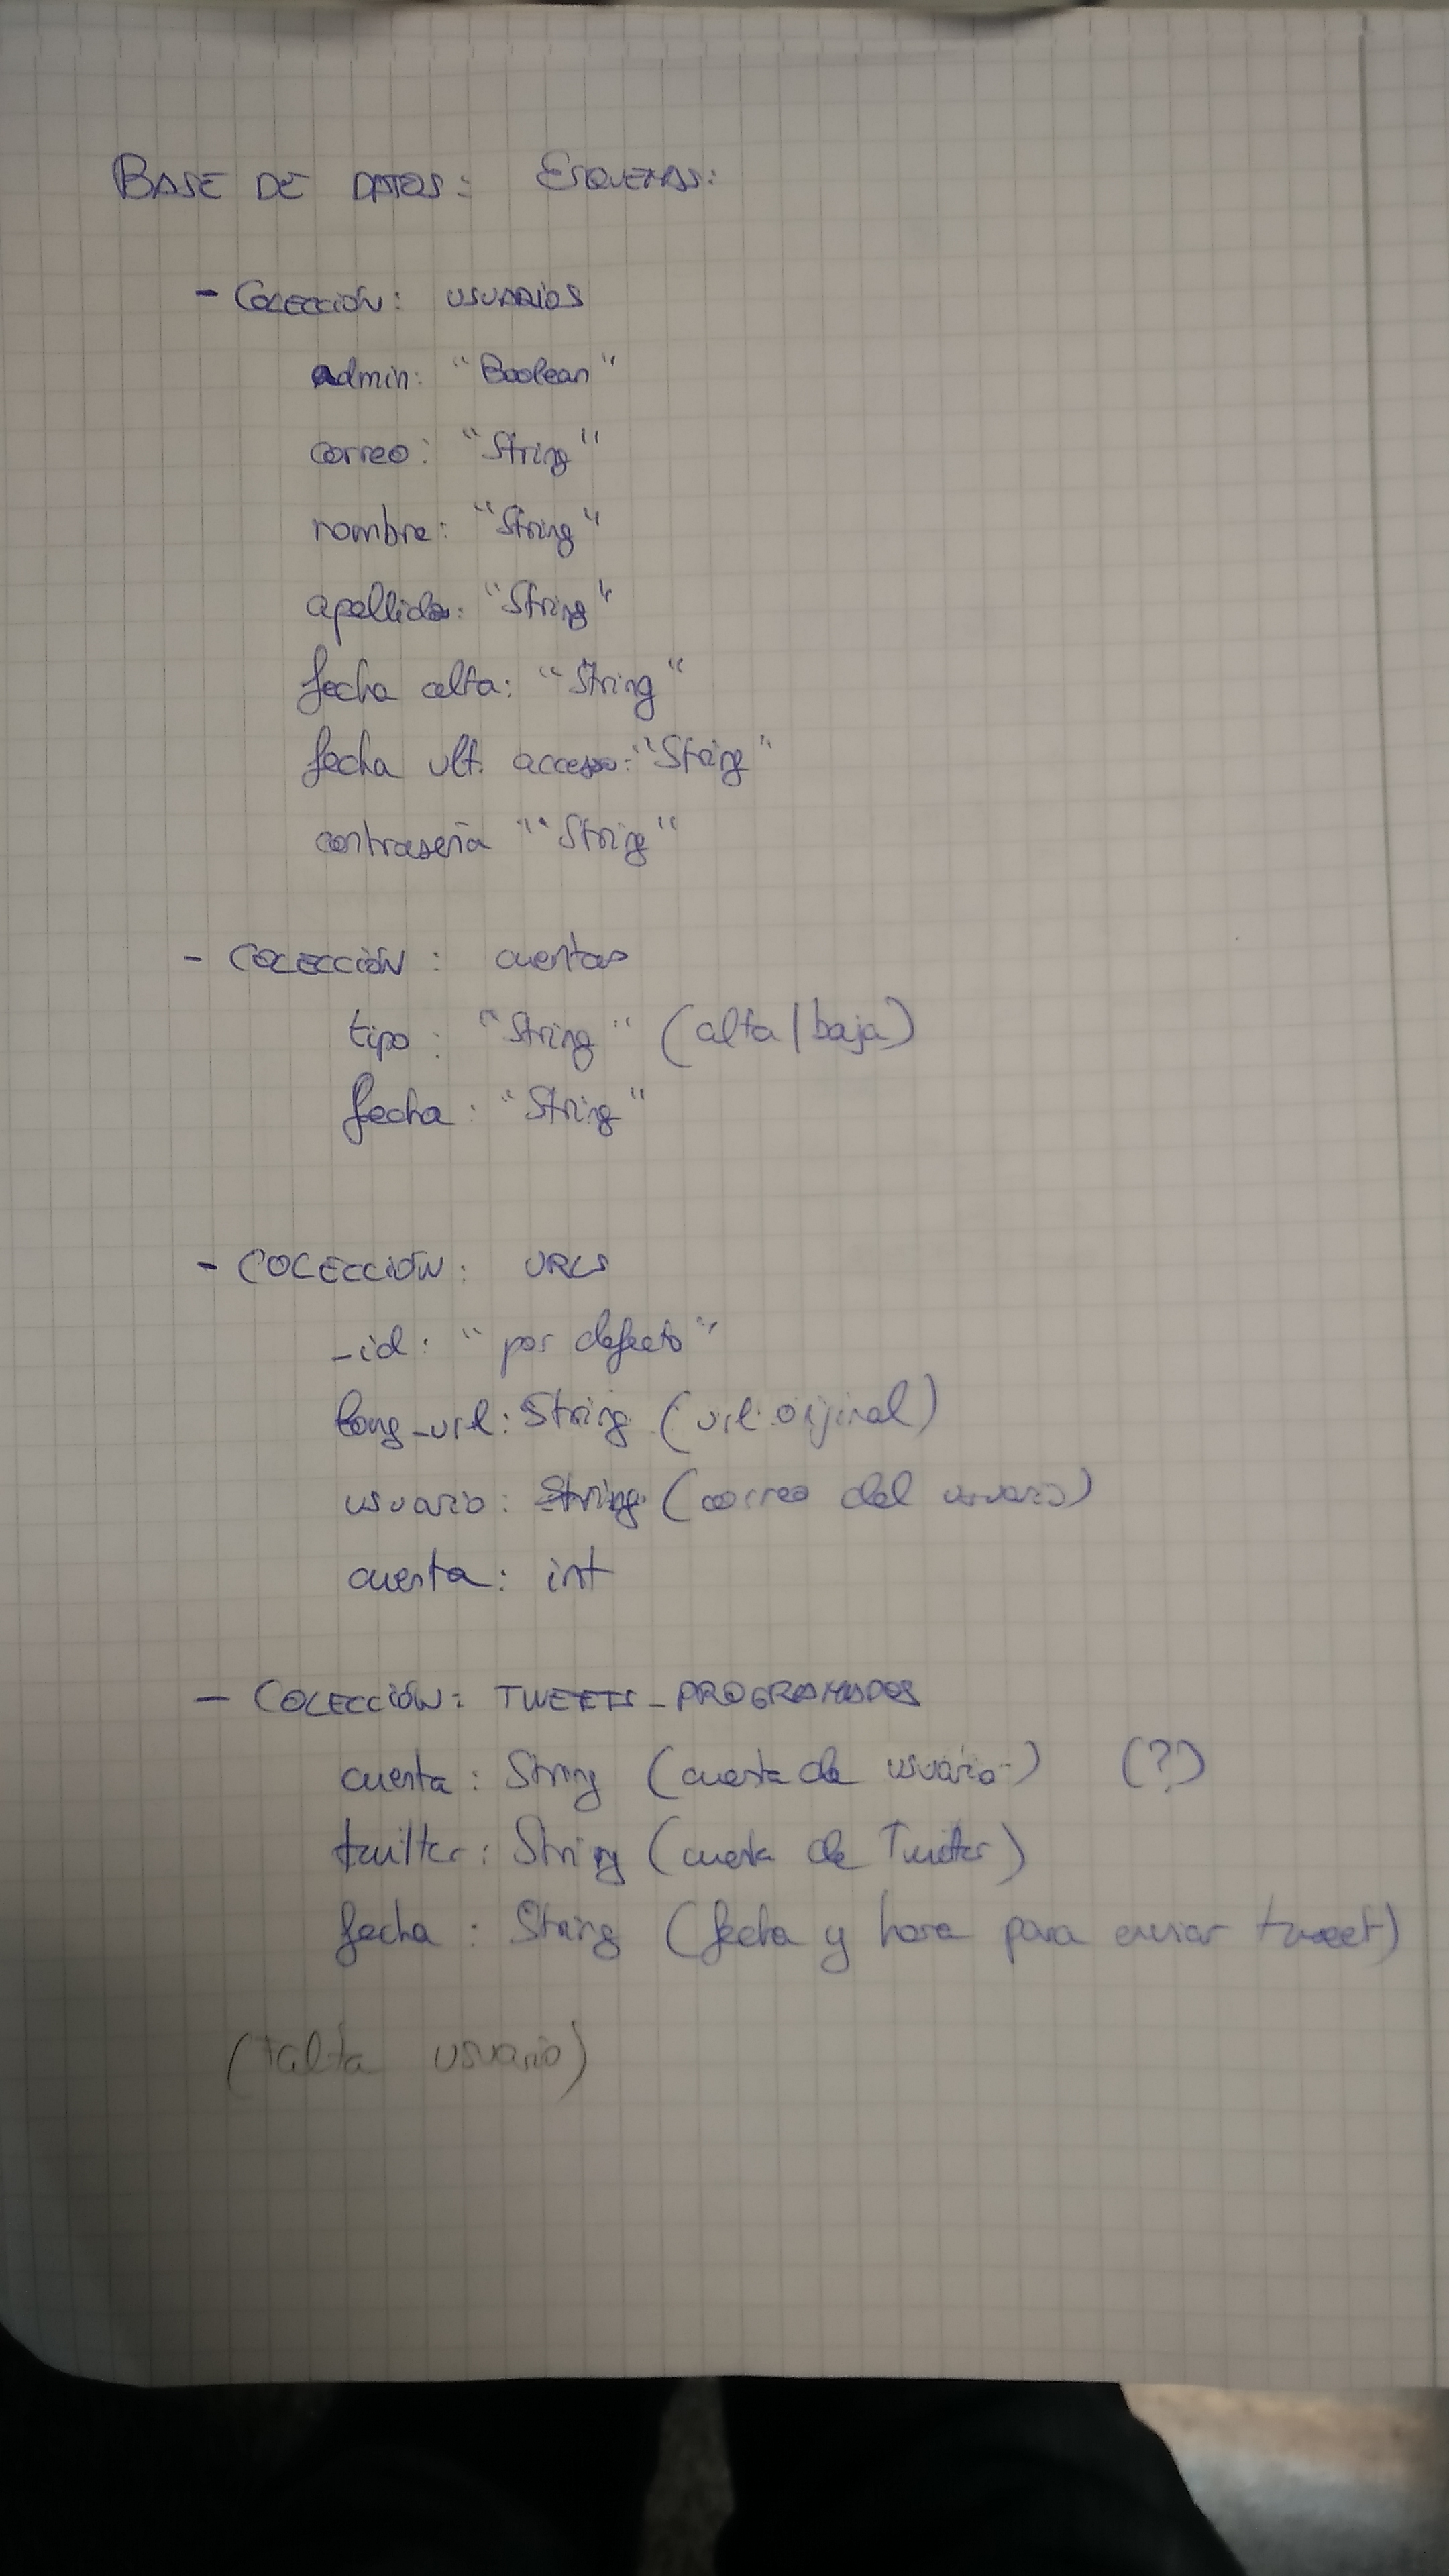 BASE DE DATOS: ESQUEMAS:
- COLECCIÓN: USUARIOS
admin: "Boolean"
correo: "String"
nombre: "String"
apellidos: "String"
fecha alta: "String"
fecha ult. acceso: "String"
contraseña "String"
- COLECCIÓN: cuentas
tipo: "String" (alta/baja)
fecha: "String"
- COLECCIÓN: URLS
_id: "por defecto"
long_url: String (url original)
usuario: String (correo del usuario)
cuenta: int
- COLECCIÓN: TWEETS_PROGRAMADOS
cuenta: String (cuenta de usuario) (?)
twitter: String (cuenta de Twitter)
fecha: String (fecha y hora para enviar tweet)
(falta usuario)